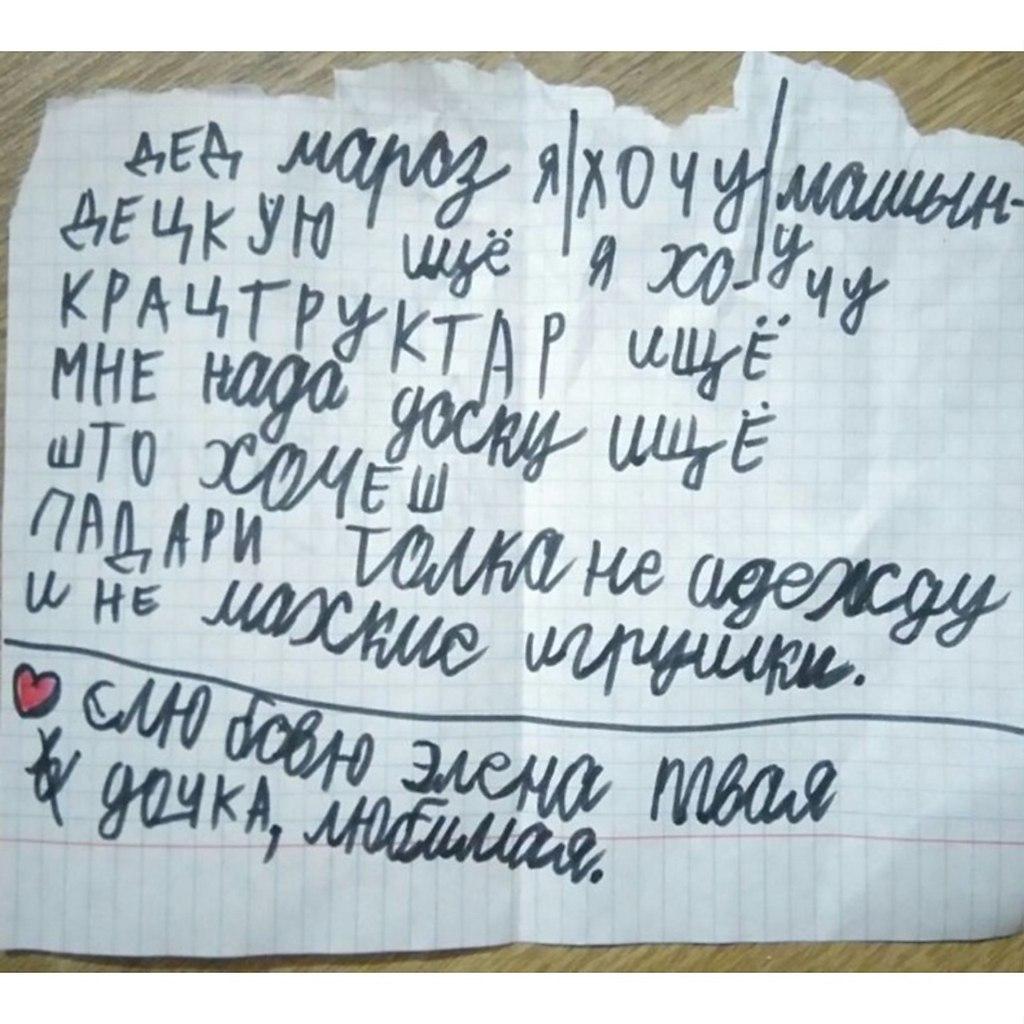 ДЕД мароз я|хочу|машын-
ДЕЦКУЮ ищё я хо-учу
КРАЦТРУКТАР ищЁ
МНЕ нада доску ищЁ
што хочЕш
ПАДАРИ толка не адежду
и не махкие игрушки.
слюбовю элена твая
дочка, любимая.